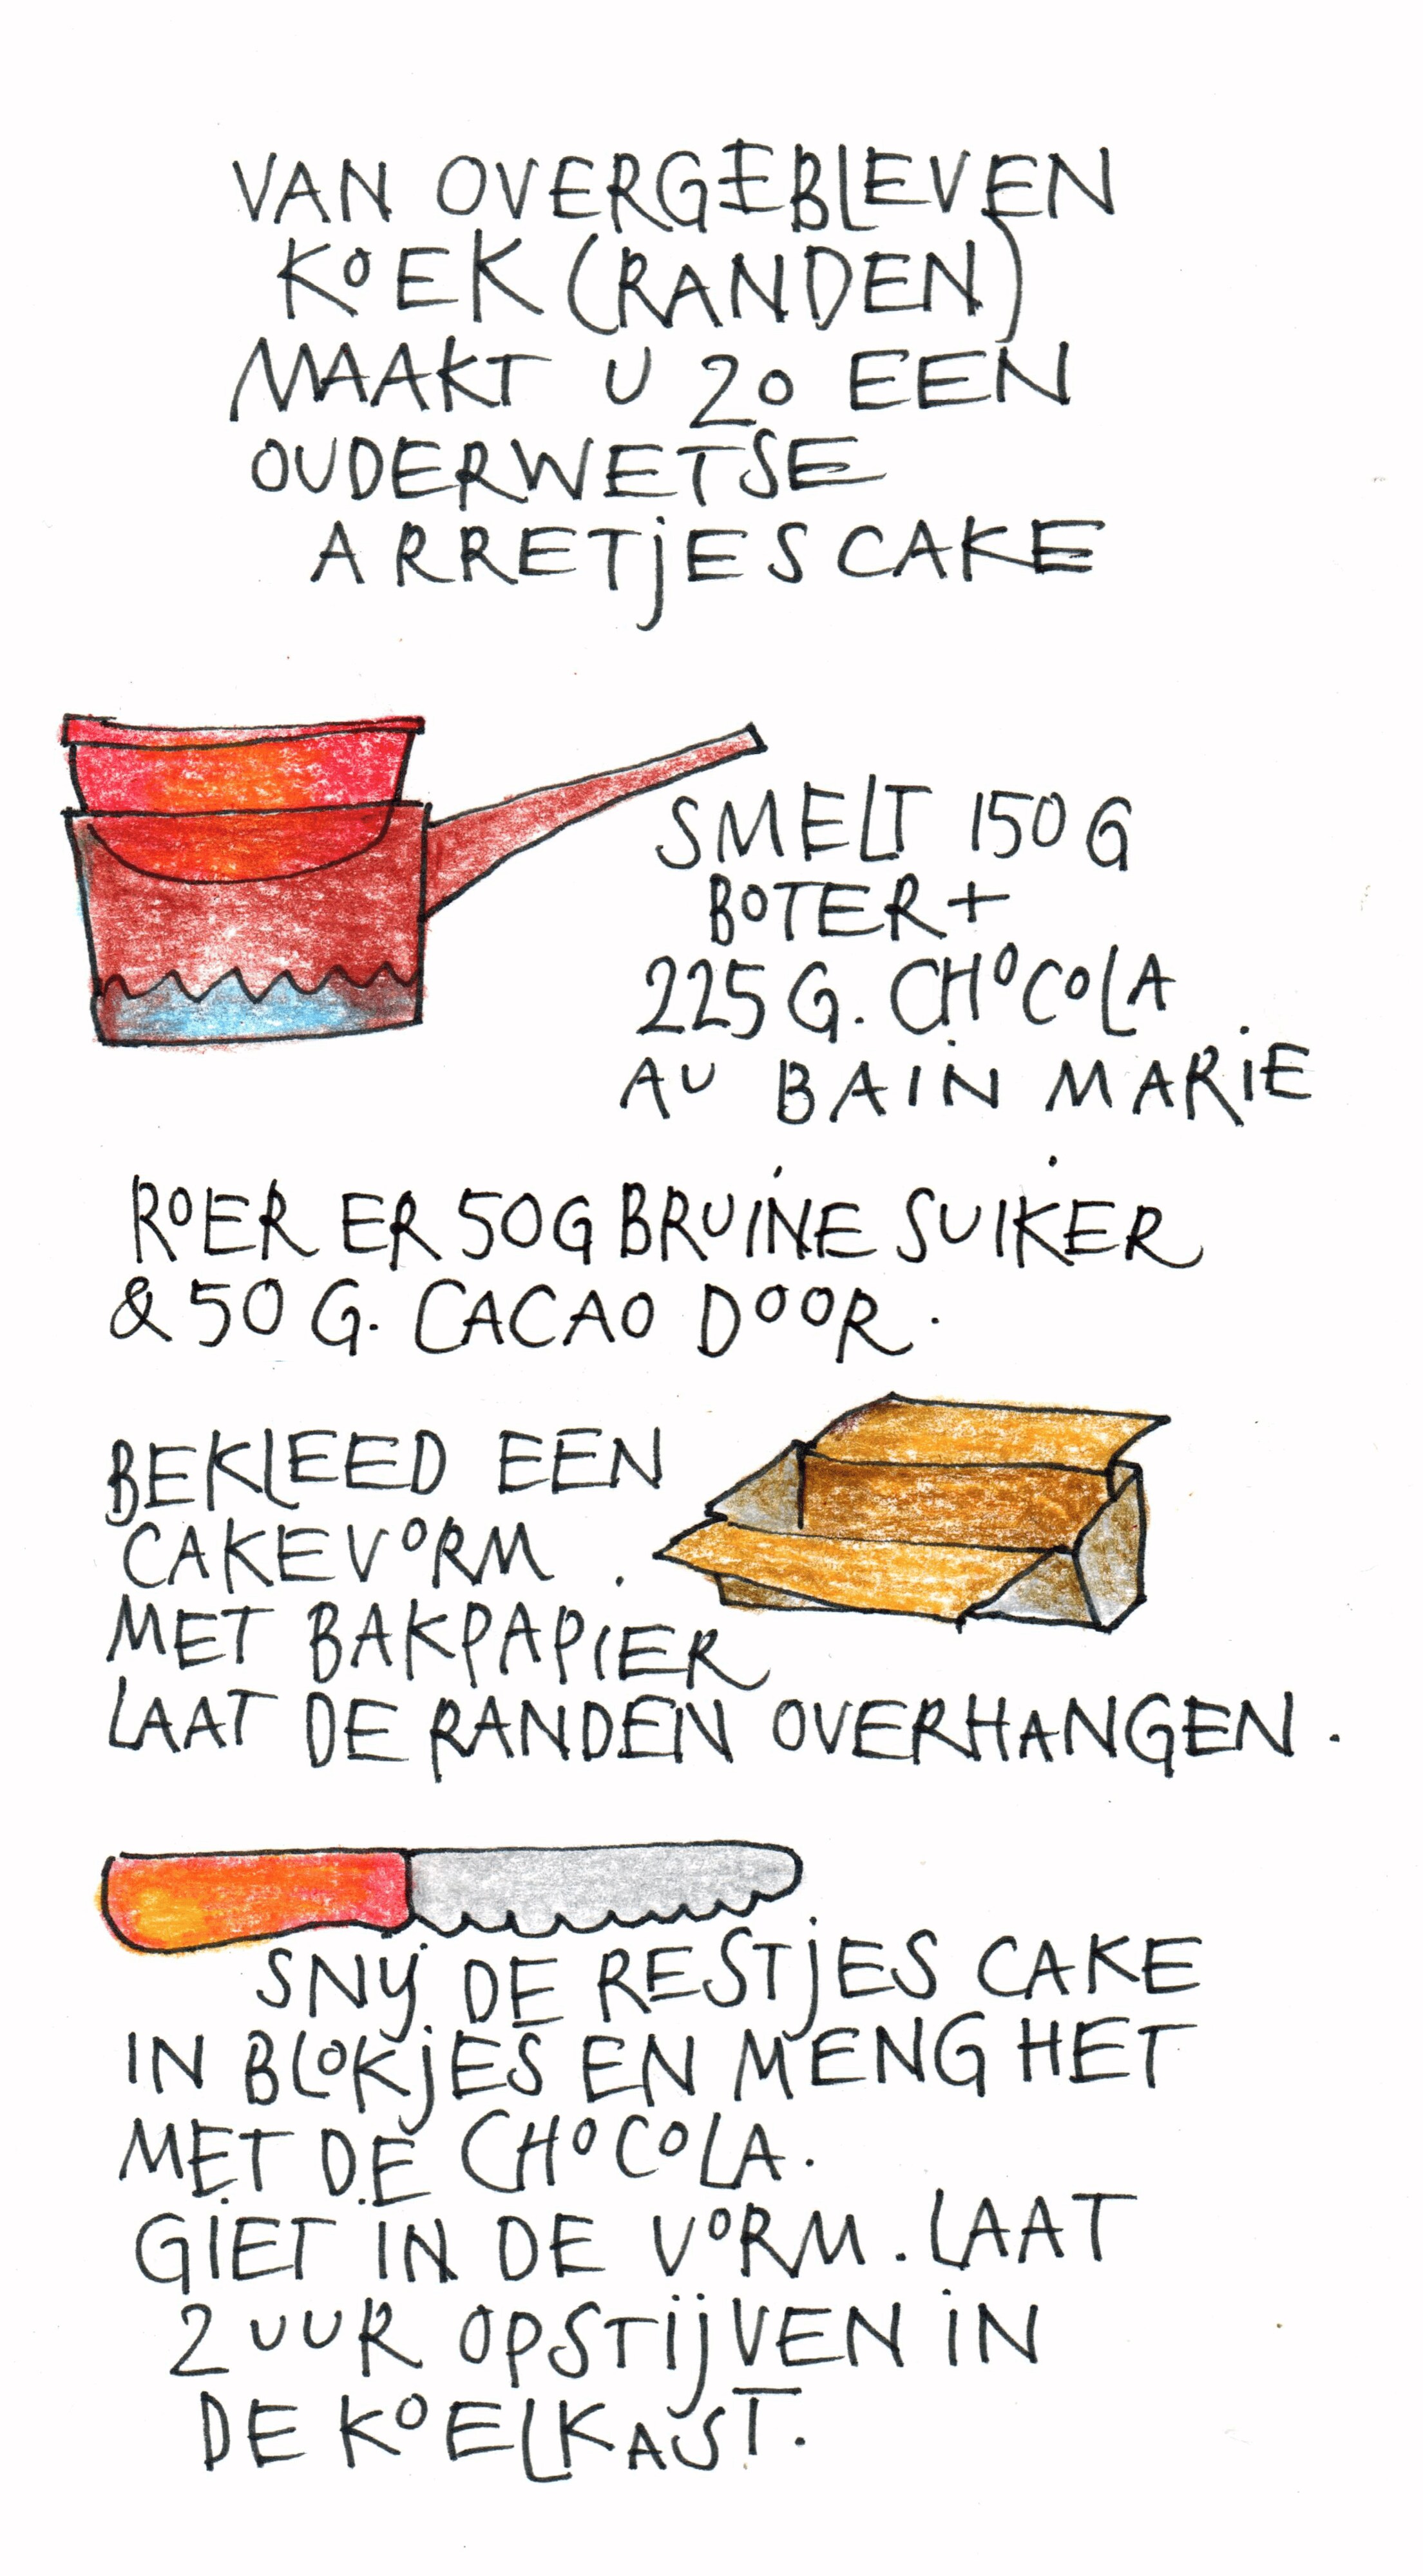 VAN OVERGEBLEVEN
KOEK (RANDEN)
MAAKT U ZO EEN
OUDERWETSE
ARRETJESCAKE
SMELT 150 G
BOTER +
225 G. CHOCOLA
AU BAIN MARIE
ROER ER 50G BRUINE SUIKER
& 50 G. CACAO DOOR.
BEKLEED EEN
CAKEVORM
MET BAKPAPIER.
LAAT DE RANDEN OVERHANGEN.
SNIJ DE RESTJES CAKE
IN BLOKJES EN MENG HET
MET DE CHOCOLA.
GIET IN DE VORM. LAAT
2 UUR OPSTIJVEN IN
DE KOELKAST.